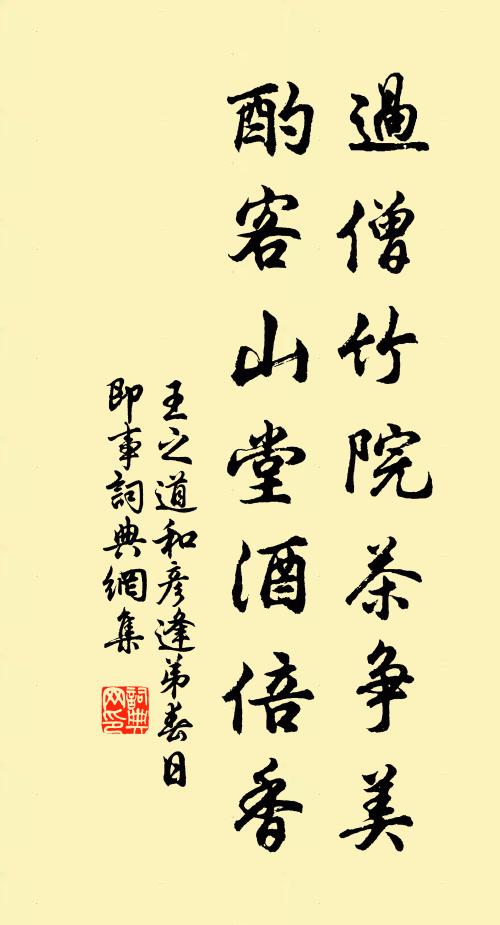 過僧竹院茶争美
酌客山堂酒倍香
王之道和彥逢弟春日
即事詞典網集
詞典網印